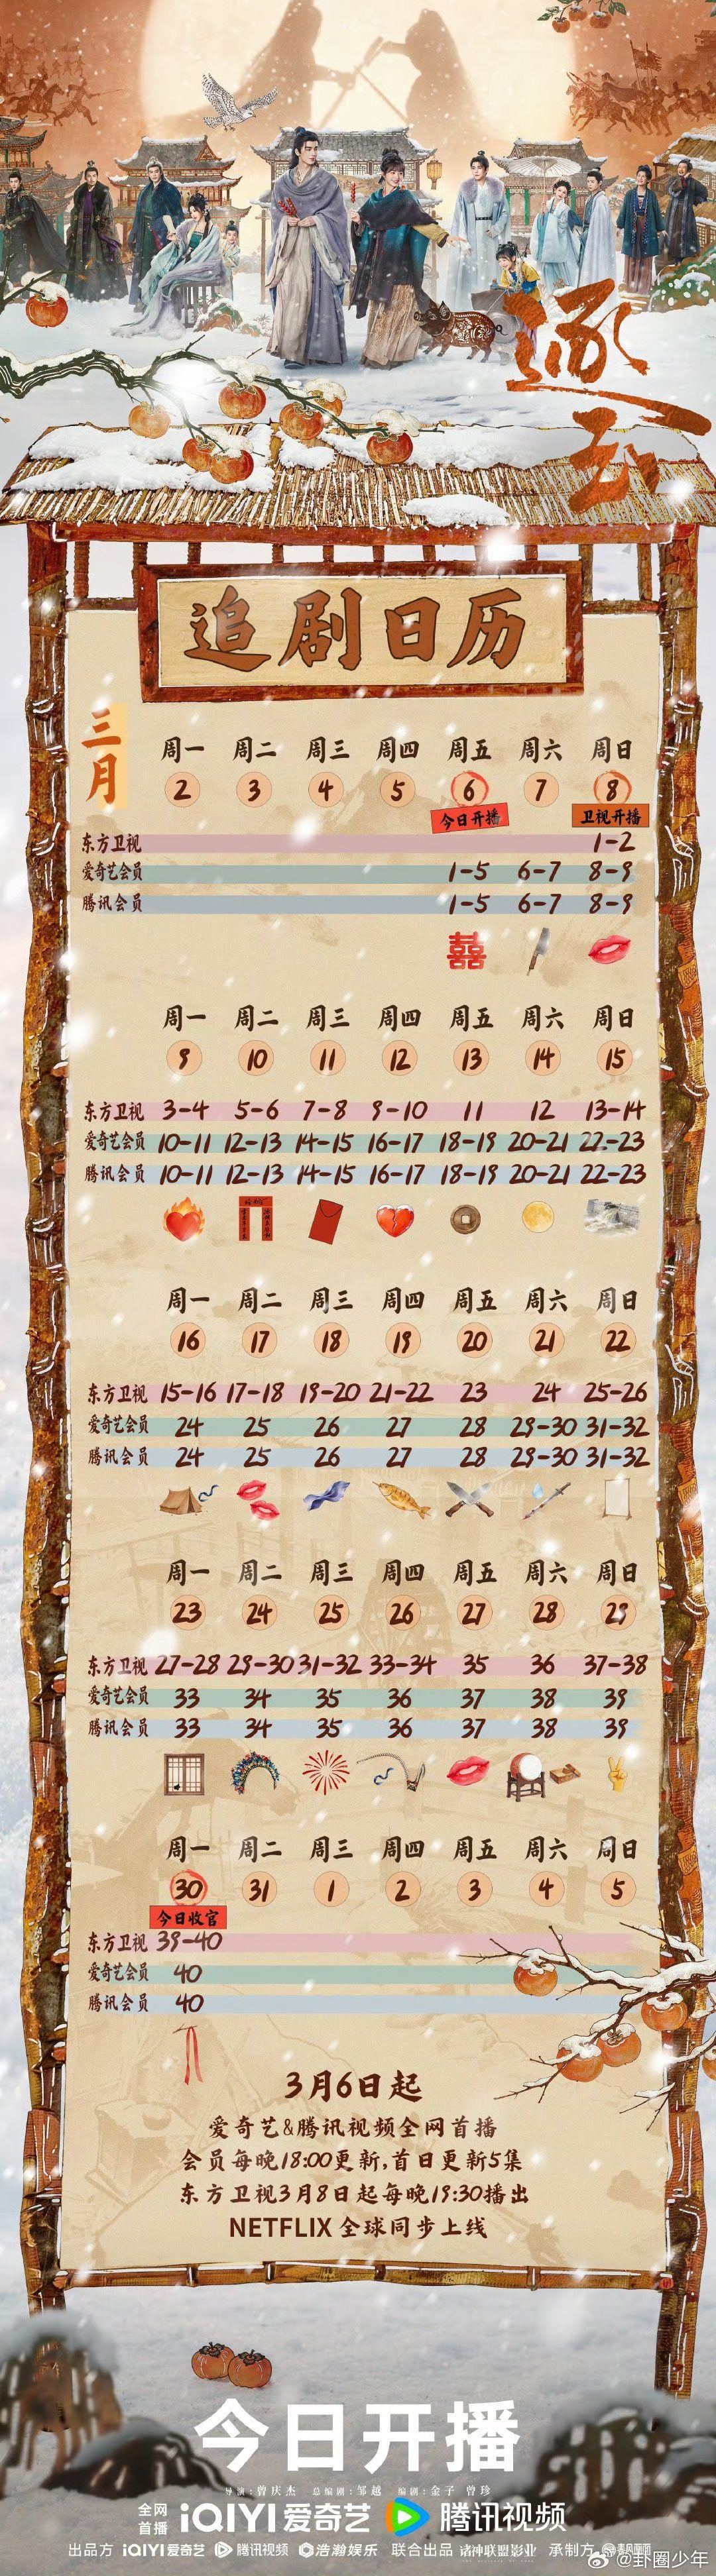 逐玉
追剧日历
三月
周一 周二 周三 周四 周五 周六 周日
2 3 4 5 6 7 8
今日开播 卫视开播
东方卫视 1-2
爱奇艺会员 1-5 6-7 8-9
腾讯会员 1-5 6-7 8-9
囍
周一 周二 周三 周四 周五 周六 周日
9 10 11 12 13 14 15
东方卫视 3-4 5-6 7-8 9-10 11 12 13-14
爱奇艺会员 10-11 12-13 14-15 16-17 18-19 20-21 22-23
腾讯会员 10-11 12-13 14-15 16-17 18-19 20-21 22-23
周一 周二 周三 周四 周五 周六 周日
16 17 18 19 20 21 22
东方卫视 15-16 17-18 19-20 21-22 23 24 25-26
爱奇艺会员 24 25 26 27 28 29-30 31-32
腾讯会员 24 25 26 27 28 29-30 31-32
周一 周二 周三 周四 周五 周六 周日
23 24 25 26 27 28 29
东方卫视 27-28 29-30 31-32 33-34 35 36 37-38
爱奇艺会员 33 34 35 36 37 38 39
腾讯会员 33 34 35 36 37 38 39
周一 周二 周三 周四 周五 周六 周日
30 31 1 2 3 4 5
今日收官
东方卫视 39-40
爱奇艺会员 40
腾讯会员 40
3月6日起
爱奇艺&腾讯视频全网首播
会员每晚18:00更新,首日更新5集
东方卫视3月8日起每晚19:30播出
NETFLIX 全球同步上线
今日开播
导演:曾庆杰 总编剧:邹越 编剧:金子 曾珍
全网首播 iQIYI 爱奇艺 腾讯视频
出品方 iQIYI 爱奇艺 腾讯视频 浩瀚娱乐 联合出品 诸神联盟影业 承制方
@卦圈少年